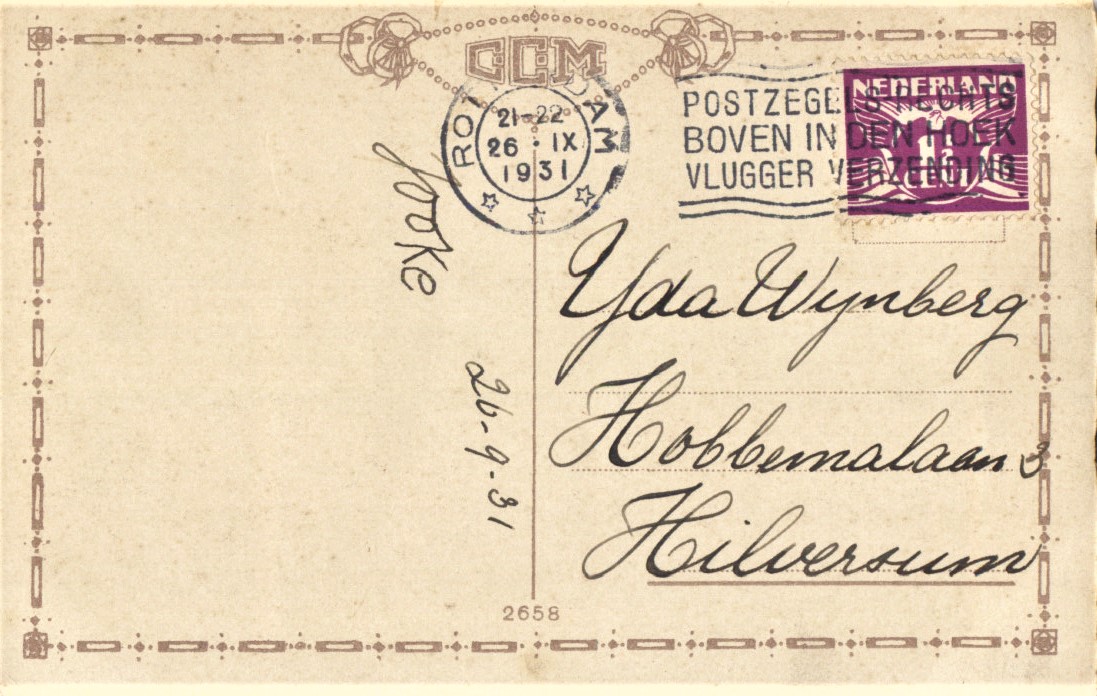 CCM
ROTTERDAM
21-22
26 · IX
1931
POSTZEGELS RECHTS
BOVEN IN DEN HOEK
VLUGGER VERZENDING
NEDERLAND
1½
CENT
Jooke
26-9-31
Yda Wynberg
Hobbemalaan 3
Hilversum
2658